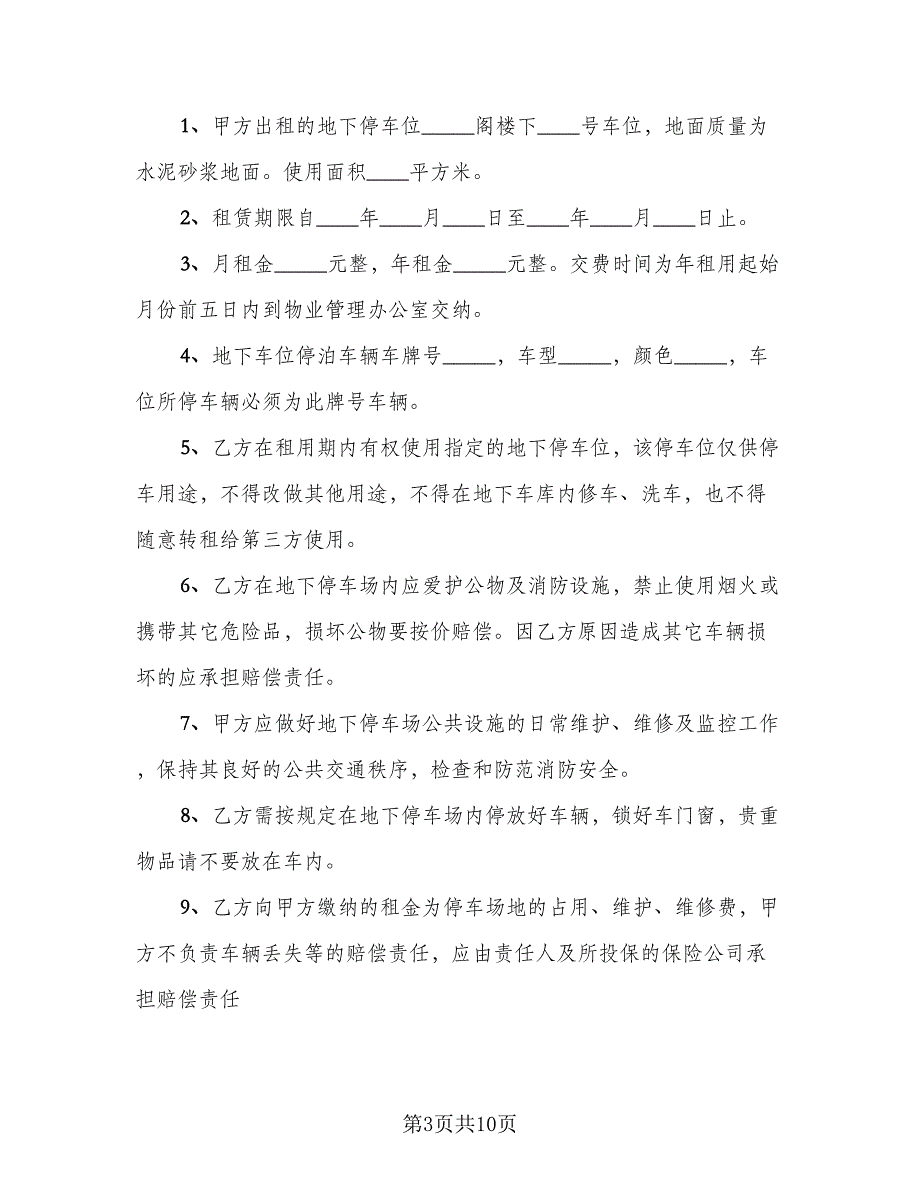 1、甲方出租的地下停车位_____阁楼下____号车位，地面质量为
水泥砂浆地面。使用面积____平方米。
2、租赁期限自____年____月____日至____年____月____日止。
3、月租金_____元整，年租金_____元整。交费时间为年租用起始
月份前五日内到物业管理办公室交纳。
4、地下车位停泊车辆车牌号_____，车型_____，颜色_____，车
位所停车辆必须为此牌号车辆。
5、乙方在租用期内有权使用指定的地下停车位，该停车位仅供停
车用途，不得改做其他用途，不得在地下车库内修车、洗车，也不得
随意转租给第三方使用。
6、乙方在地下停车场内应爱护公物及消防设施，禁止使用烟火或
携带其它危险品，损坏公物要按价赔偿。因乙方原因造成其它车辆损
坏的应承担赔偿责任。
7、甲方应做好地下停车场公共设施的日常维护、维修及监控工作
，保持其良好的公共交通秩序，检查和防范消防安全。
8、乙方需按规定在地下停车场内停放好车辆，锁好车门窗，贵重
物品请不要放在车内。
9、乙方向甲方缴纳的租金为停车场地的占用、维护、维修费，甲
方不负责车辆丢失等的赔偿责任，应由责任人及所投保的保险公司承
担赔偿责任
第3页共10页